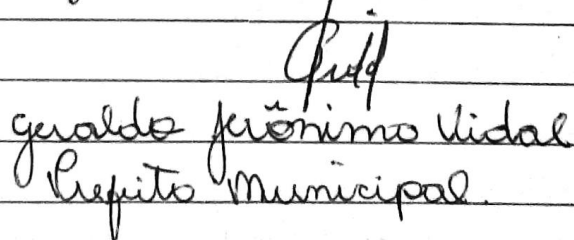 Geraldo Jerônimo Vidal
Prefeito Municipal.